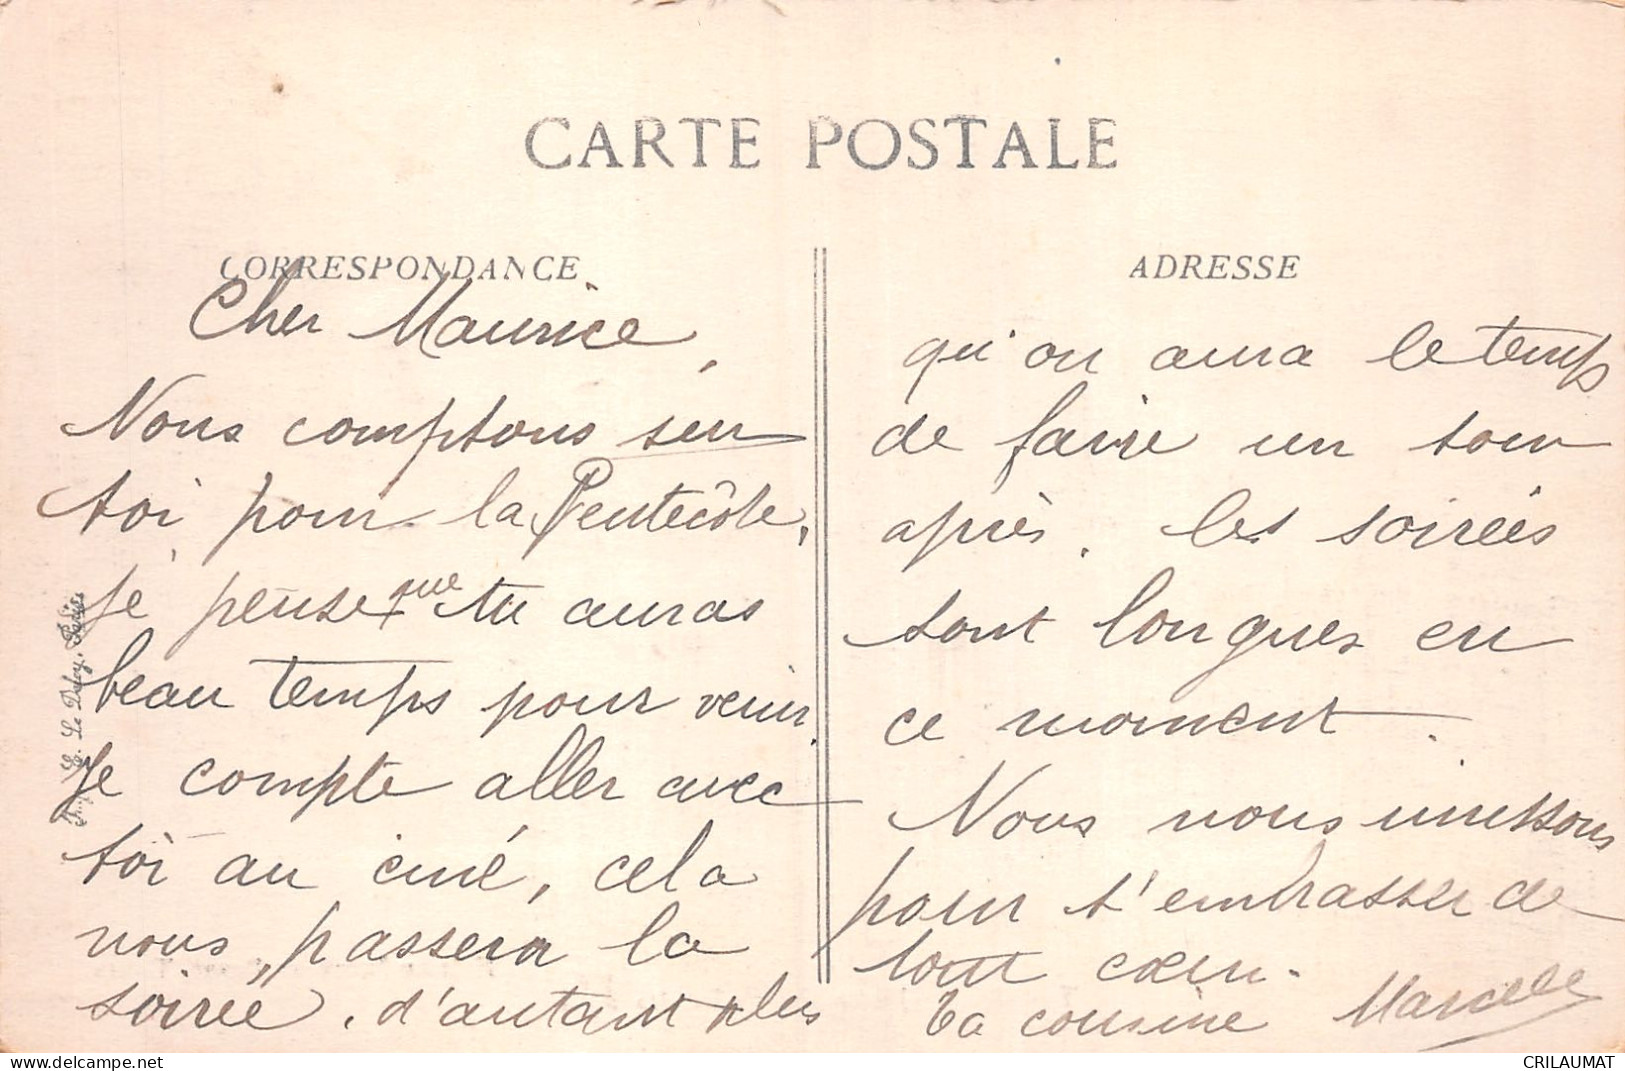 CARTE POSTALE
CORRESPONDANCE
Cher Maurice,
Nous comptons sur
toi pour la Pentecôte,
je pense que tu auras
beau temps pour venir.
Je compte aller avec
toi au ciné, cela
nous passera la
soirée, d'autant plus
ADRESSE
qu'on aura le temps
de faire un tour
après. les soirées
sont longues en
ce moment.
Nous nous unissons
pour t'embrasser de
tout cœur.
Ta cousine Marcelle
E. Le Deley, Paris
CRILAUMAT